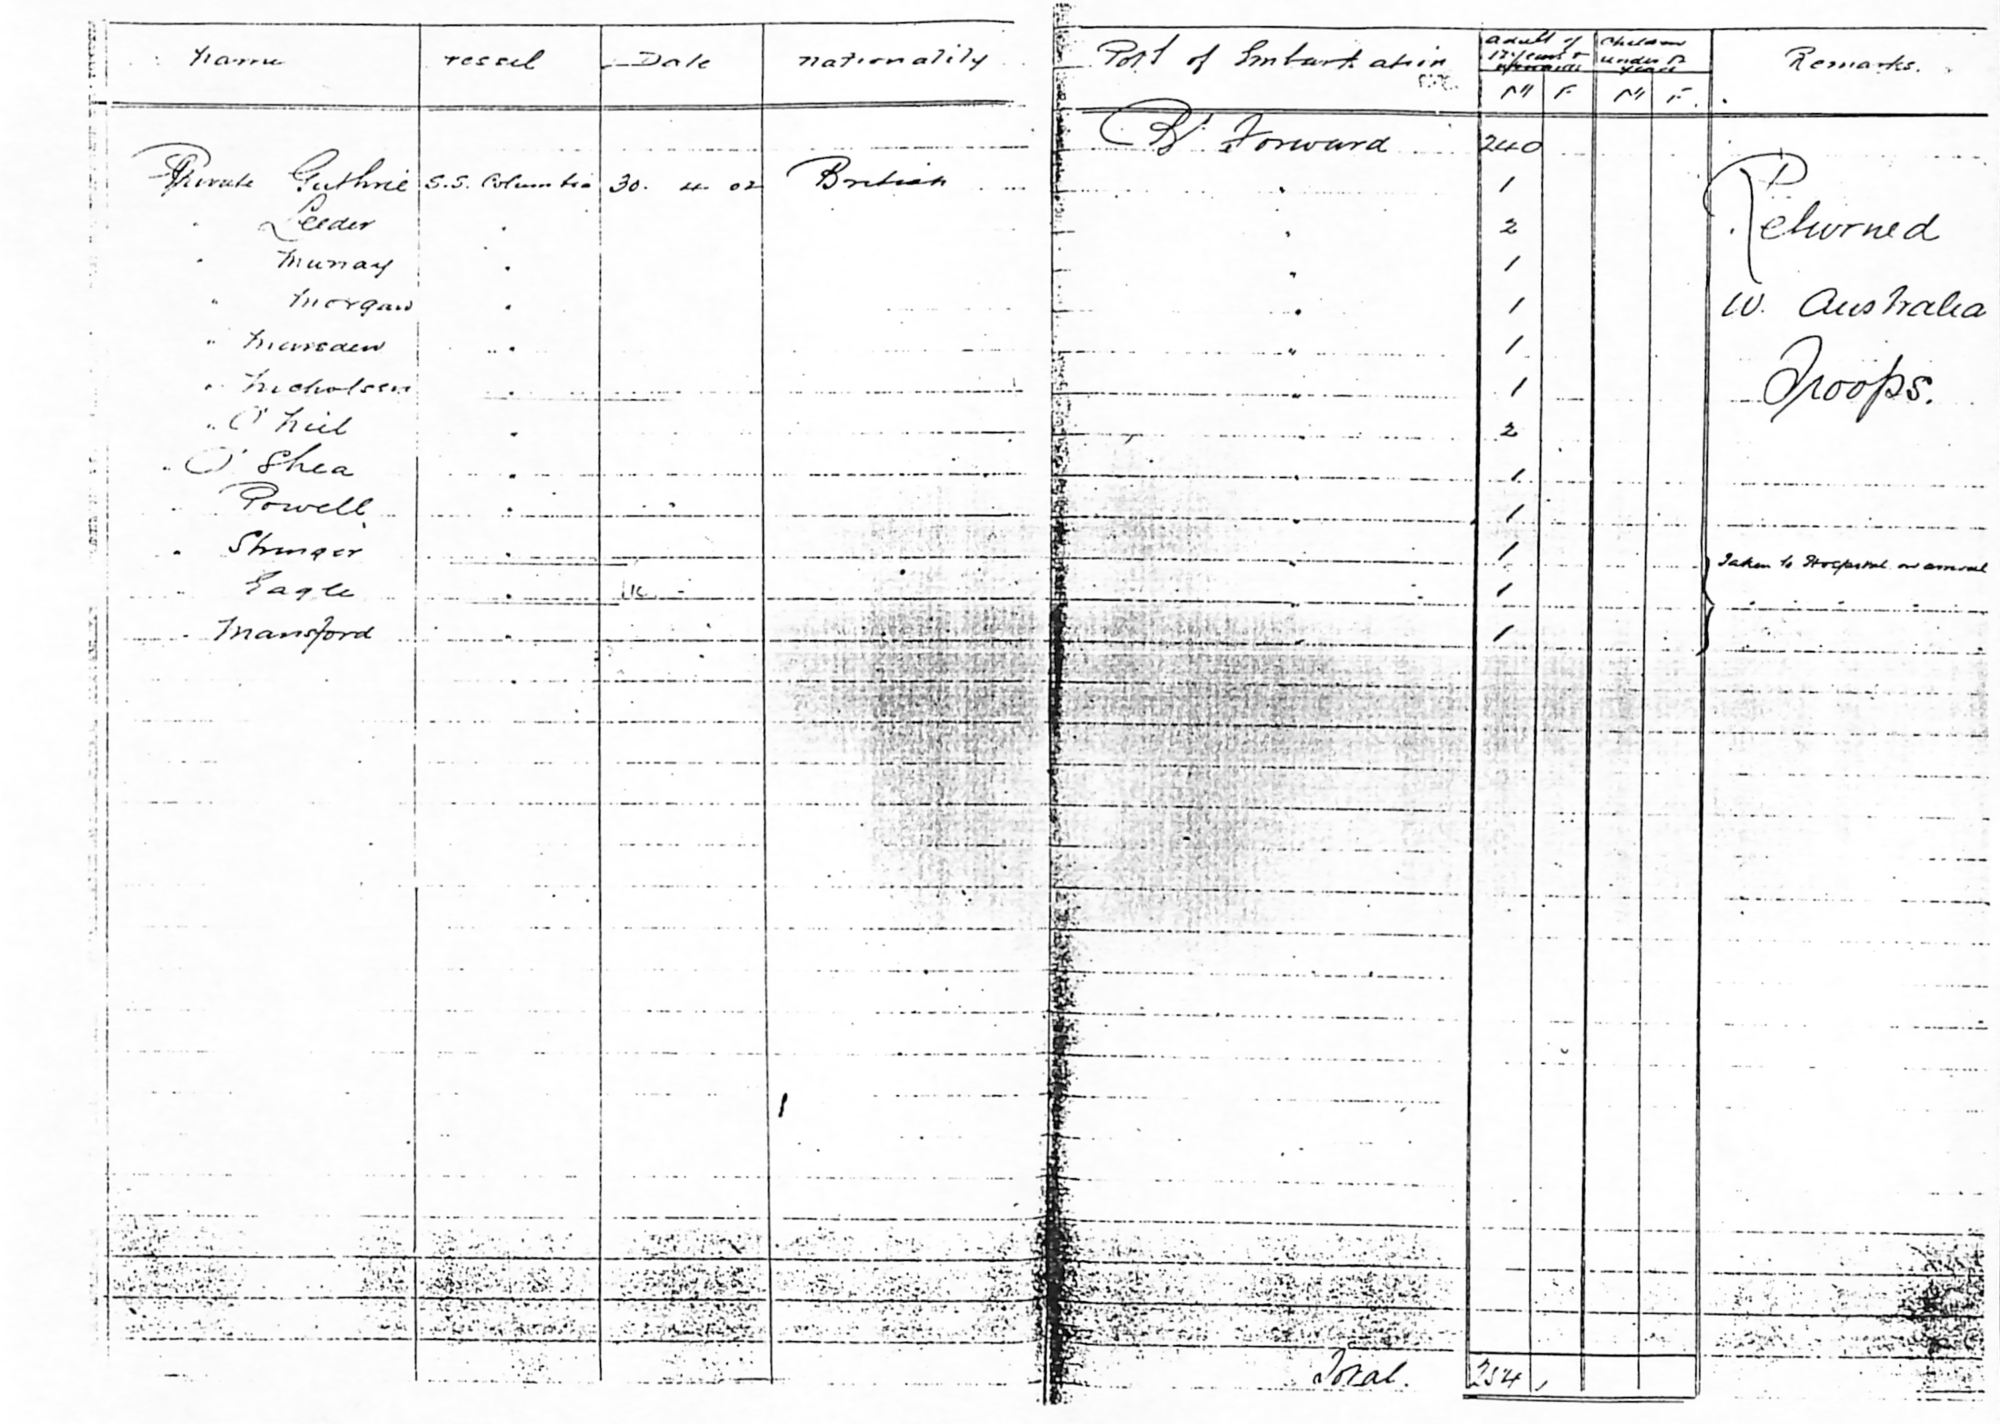 Name Vessel Date Nationality Port of Embarkation Adult of 12 years & upwards Children under 12 years Remarks.
M F M F.
Bt Forward 240
Private Guthrie S.S. Columbia 30. 4 02 British " 1
" Leeder " " 2 Returned
" Murray " " 1
" Morgan " " 1 W. Australia
" Marsden " " 1
" Nicholson " " 1 Troops.
" O'Neil " " 2
" O'Shea " " 1
" Powell " " 1
" Stringer " " 1 Taken to Hospital on arrival
Eagle " " 1 " " " "
" Mansford " " 1
Total. 254